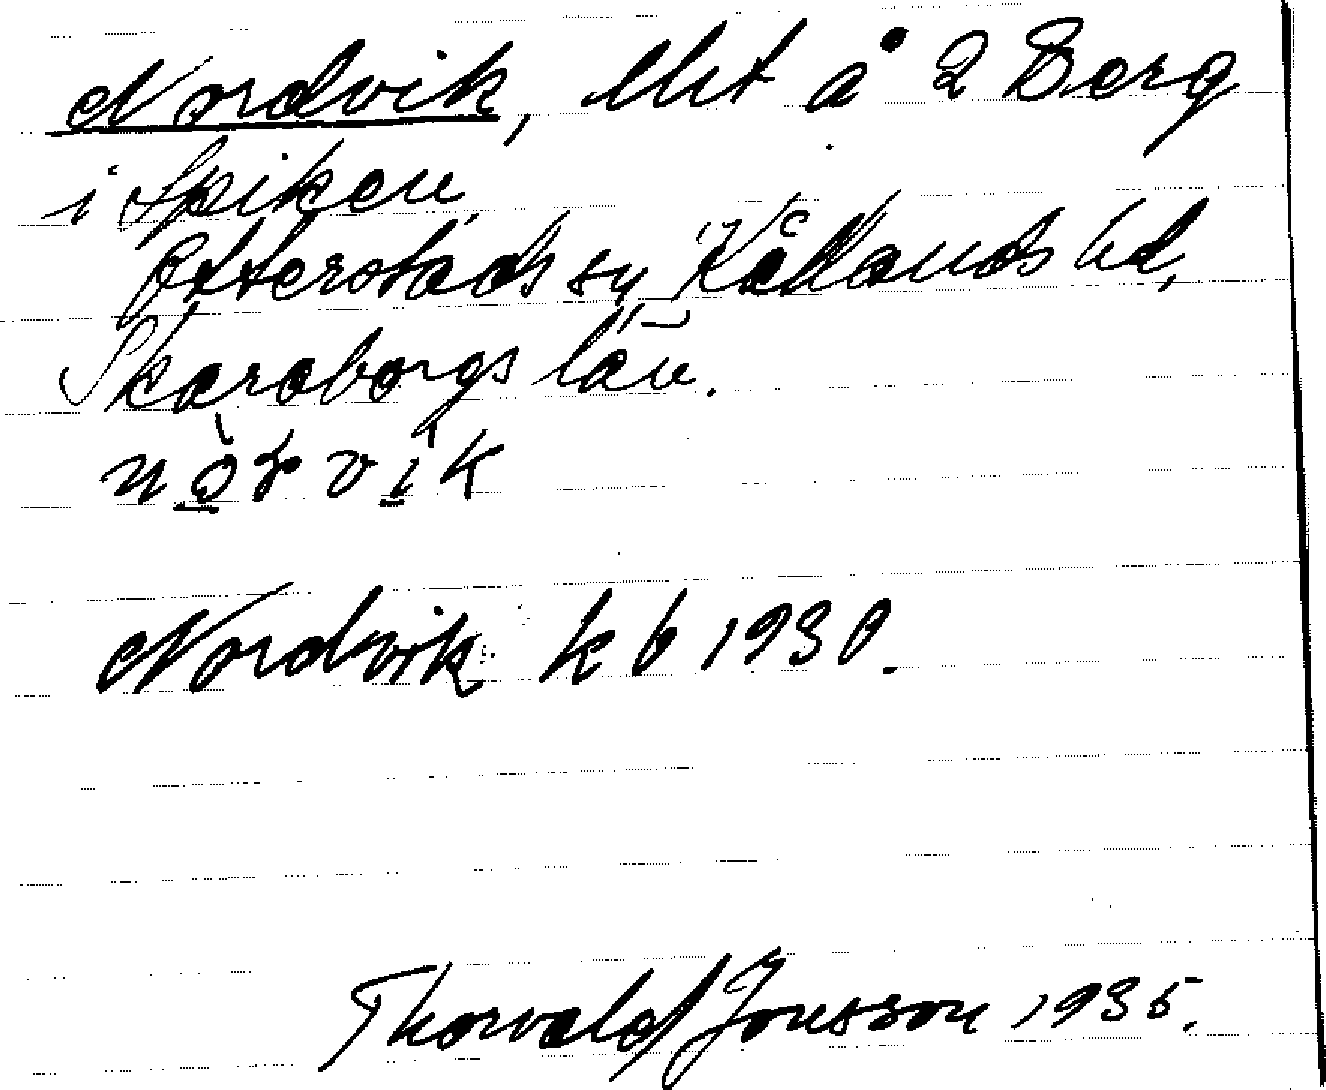 Nordvik, lht å 2 Berg
i Spiken
Otterstads sn Kållands hd,
Skaraborgs län.
nò̱r vi̱k
Nordvik kb 1930.
Thorvald Jonsson 1935.